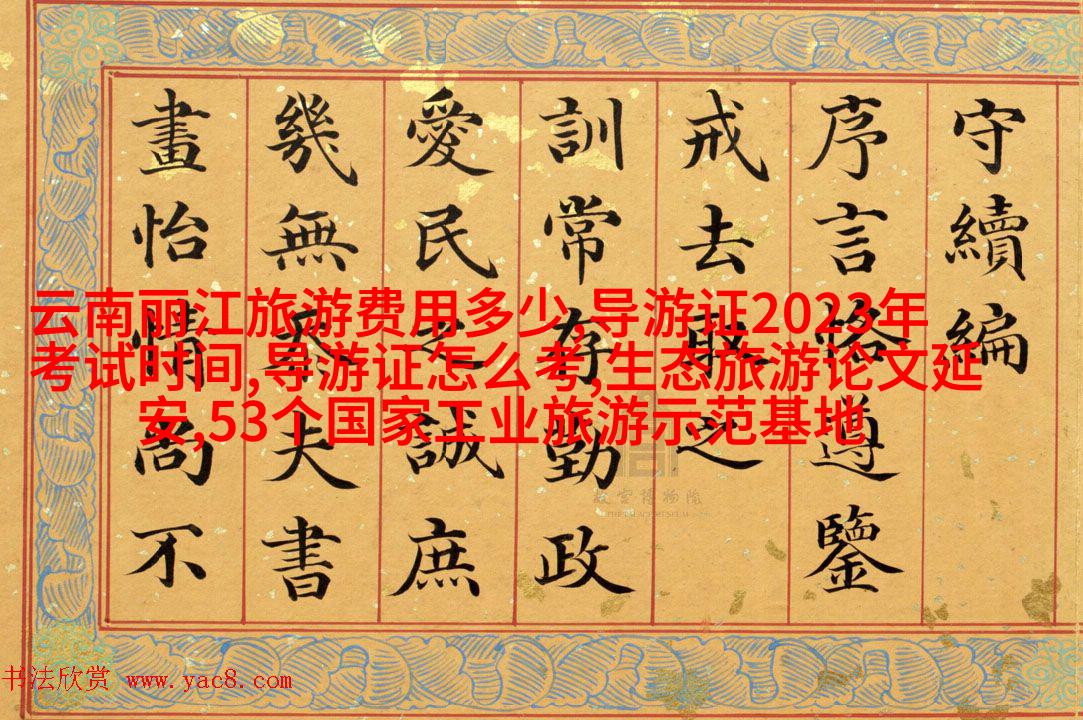 守續編
序言恪遵鑒
戒去取之
訓常存勤政
愛民之誠庶
幾無忝夫書
畫怡情尚不
云南丽江旅游费用多少,导游证2023年
考试时间,导游证怎么考,生态旅游论文延
安,53个国家工业旅游示范基地
故宫博物院
THE PALACE MUSEUM
书法欣赏 www.yac8.com